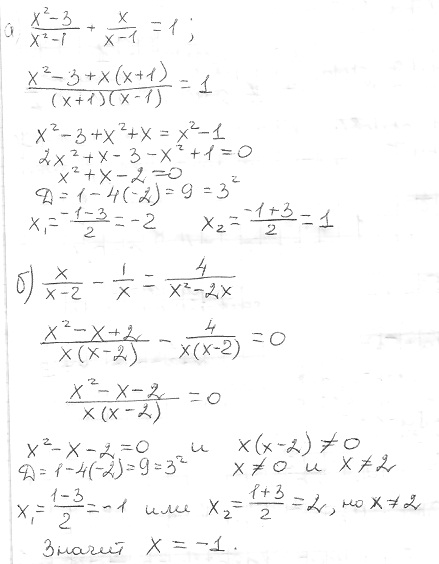 а) (x²-3)/(x²-1) + x/(x-1) = 1 ;
(x²-3+x(x+1))/((x+1)(x-1)) = 1
x²-3+x²+x = x²-1
2x²+x-3-x²+1=0
x²+x-2=0
Д=1-4(-2)=9=3²
x₁=(-1-3)/2=-2 x₂=(-1+3)/2=1
б) x/(x-2) - 1/x = 4/(x²-2x)
(x²-x+2)/(x(x-2)) - 4/(x(x-2)) = 0
(x²-x-2)/(x(x-2)) = 0
x²-x-2=0 и x(x-2)≠0
Д=1-4(-2)=9=3² x≠0 и x≠2
x₁=(1-3)/2=-1 или x₂=(1+3)/2=2, но x≠2
Значит x=-1.